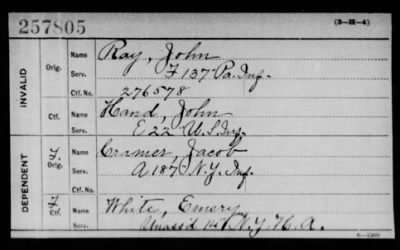 257805 (3-H-4)
INVALID
Orig. Name Ray, John
Serv. F 137 Pa. Inf.
Ctf. No. 276578
Ctf. Name Hand, John
Serv. E 22 U.S. Inf.
DEPENDENT
F. Orig. Name Cramer, Jacob
Serv. A 187 N.Y. Inf.
F. Ctf. Name White, Emery
Serv. Unass'd N.Y. H. A.